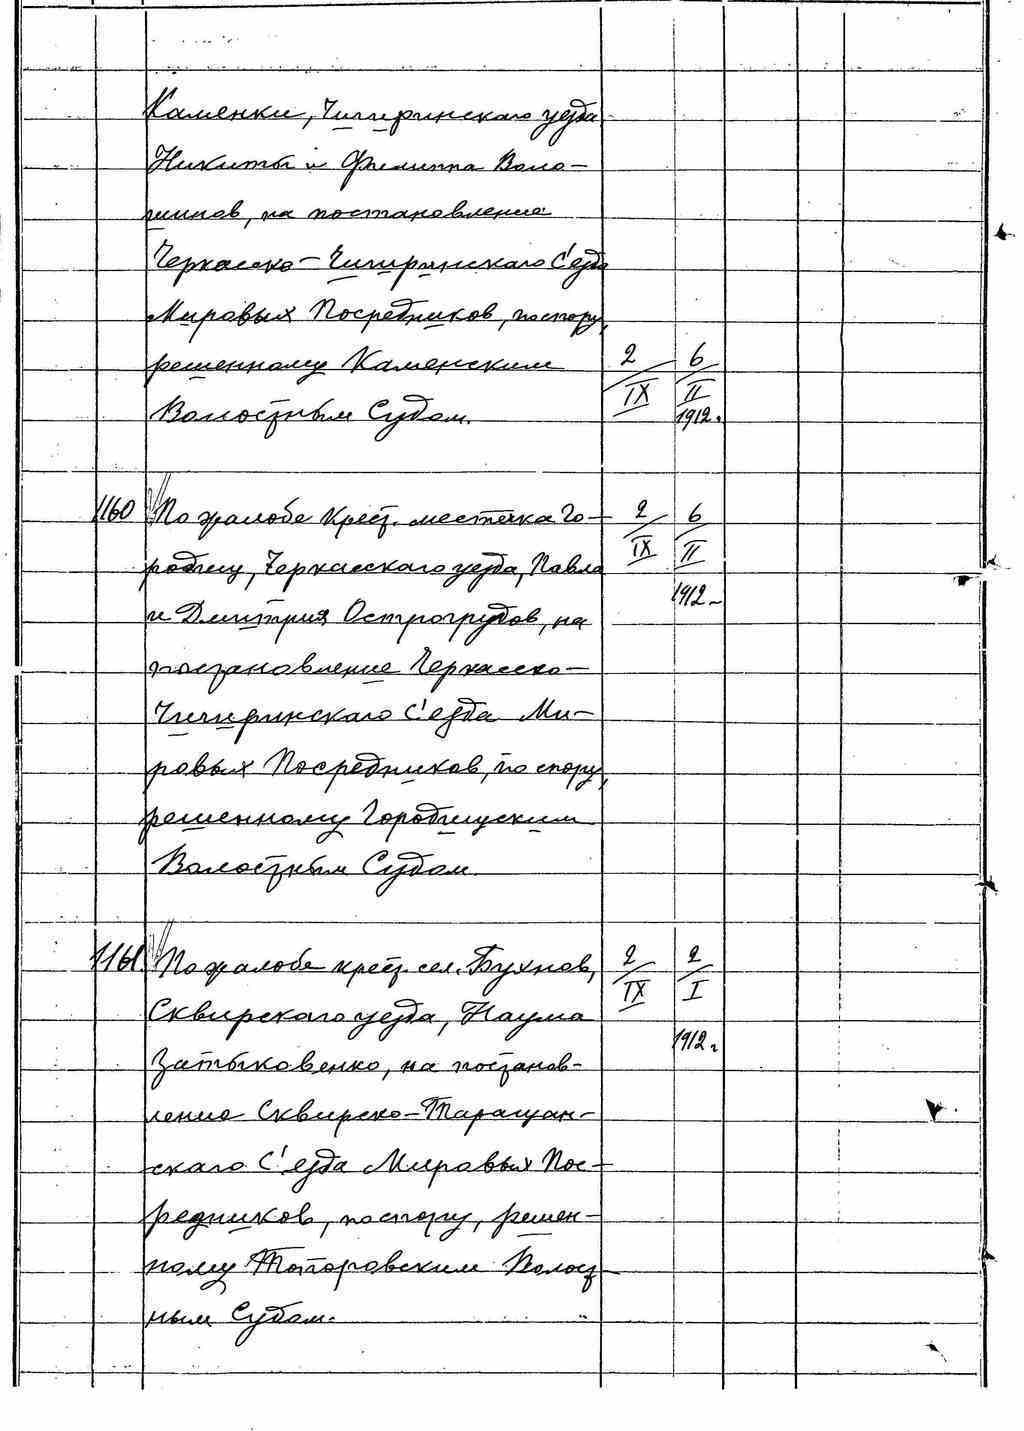 Каменки, Чигиринскаго уезда
Никиты и Филиппа Воло-
шинов, на постановление
Черкасско-Чигиринскаго С'езда
Мировых Посредников, по спору,
решенному Каменским 2/IX 6/II
Волостным Судом. 1912 г.
1160 По жалобе крест. местечка Го- 2/IX 6/II
родищ, Черкасскаго уезда, Павла 1912 г.
и Дмитрия Острогрудов, на
постановление Черкасско-
Чигиринскаго С'езда Ми-
ровых Посредников, по спору,
решенному Городищуским
Волостным Судом.
1161 По жалобе крест. сел. Бухнов, 2/IX 2/I
Сквирскаго уезда, Наума 1912 г.
Затыковенко, на постанов-
ление Сквирско-Таращан-
скаго С'езда Мировых Пос-
редников, по спору, решен-
ному Топоровским Волост-
ным Судом.